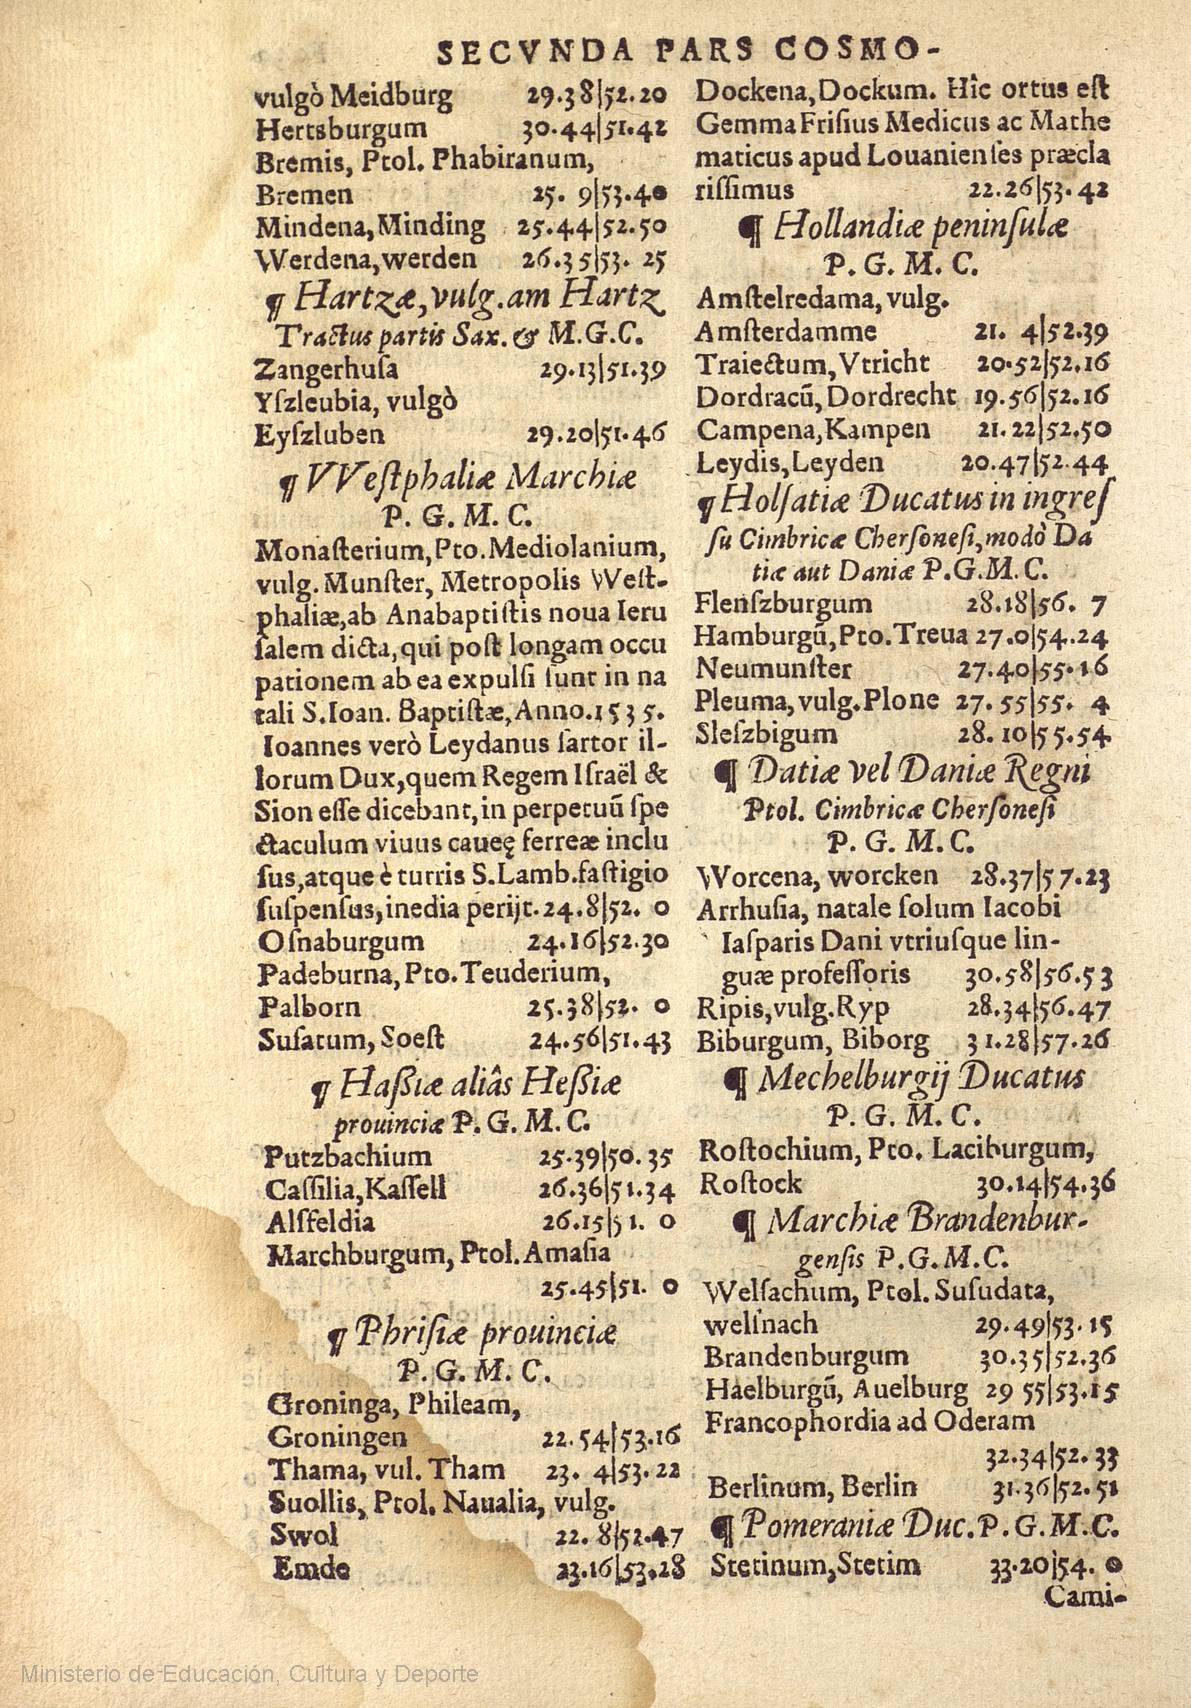 SECVNDA PARS COSMO-
vulgò Meidburg 29.38|52.20
Hertsburgum 30.44|51.42
Bremis, Ptol. Phabiranum,
Bremen 25. 9|53.40
Mindena, Minding 25.44|52.50
Werdena, werden 26.35|53. 25
¶ Hartzæ, vulg. am Hartz
Tractus partis Sax. & M.G.C.
Zangerhusa 29.13|51.39
Yszleubia, vulgò
Eyszluben 29.20|51.46
¶ VVestphaliæ Marchiæ
P. G. M. C.
Monasterium, Pto. Mediolanium,
vulg. Munster, Metropolis West-
phaliæ, ab Anabaptistis noua Ieru
salem dicta, qui post longam occu
pationem ab ea expulsi sunt in na
tali S. Ioan. Baptistæ, Anno. 1535.
Ioannes verò Leydanus sartor il-
lorum Dux, quem Regem Israël &
Sion esse dicebant, in perpetuũ spe
ctaculum viuus caueę ferreæ inclu
sus, atque è turris S. Lamb. fastigio
suspensus, inedia perijt. 24.8|52. 0
Osnaburgum 24.16|52.30
Padeburna, Pto. Teuderium,
Palborn 25.38|52. 0
Susatum, Soest 24.56|51.43
¶ Hassiæ aliâs Hessiæ
prouinciæ P. G. M. C.
Putzbachium 25.39|50.35
Cassilia, Kassell 26.36|51.34
Alsfeldia 26.15|51. 0
Marchburgum, Ptol. Amasia
25.45|51. 0
¶ Phrisiæ prouinciæ
P. G. M. C.
Groninga, Phileam,
Groningen 22.54|53.16
Thama, vul. Tham 23. 4|53.22
Suollis, Ptol. Naualia, vulg.
Swol 22. 8|52.47
Emde 23.16|53.28
Dockena, Dockum. Hîc ortus est
Gemma Frisius Medicus ac Mathe
maticus apud Louanienses præcla
rissimus 22.26|53.42
¶ Hollandiæ peninsulæ
P. G. M. C.
Amstelredama, vulg.
Amsterdamme 21. 4|52.39
Traiectum, Vtricht 20.52|52.16
Dordracũ, Dordrecht 19.56|52.16
Campena, Kampen 21.22|52.50
Leydis, Leyden 20.47|52.44
¶ Holsatiæ Ducatus in ingres
su Cimbricæ Chersonesi, modò Da
tiæ aut Daniæ P.G.M.C.
Flenszburgum 28.18|56. 7
Hamburgũ, Pto. Treua 27.0|54.24
Neumunster 27.40|55.16
Pleuma, vulg. Plone 27.55|55. 4
Sleszbigum 28.10|55.54
¶ Datiæ vel Daniæ Regni
Ptol. Cimbricæ Chersonesi
P. G. M. C.
Worcena, worcken 28.37|57.23
Arrhusia, natale solum Iacobi
Iasparis Dani vtriusque lin-
guæ professoris 30.58|56.53
Ripis, vulg. Ryp 28.34|56.47
Biburgum, Biborg 31.28|57.26
¶ Mechelburgij Ducatus
P. G. M. C.
Rostochium, Pto. Laciburgum,
Rostock 30.14|54.36
¶ Marchiæ Brandenbur-
gensis P.G.M.C.
Welsachum, Ptol. Susudata,
welsnach 29.49|53.15
Brandenburgum 30.35|52.36
Haelburgũ, Auelburg 29 55|53.15
Francophordia ad Oderam
32.34|52.33
Berlinum, Berlin 31.36|52.51
¶ Pomeraniæ Duc. P.G.M.C.
Stetinum, Stetim 33.20|54. 0
Cami-
Ministerio de Educación, Cultura y Deporte